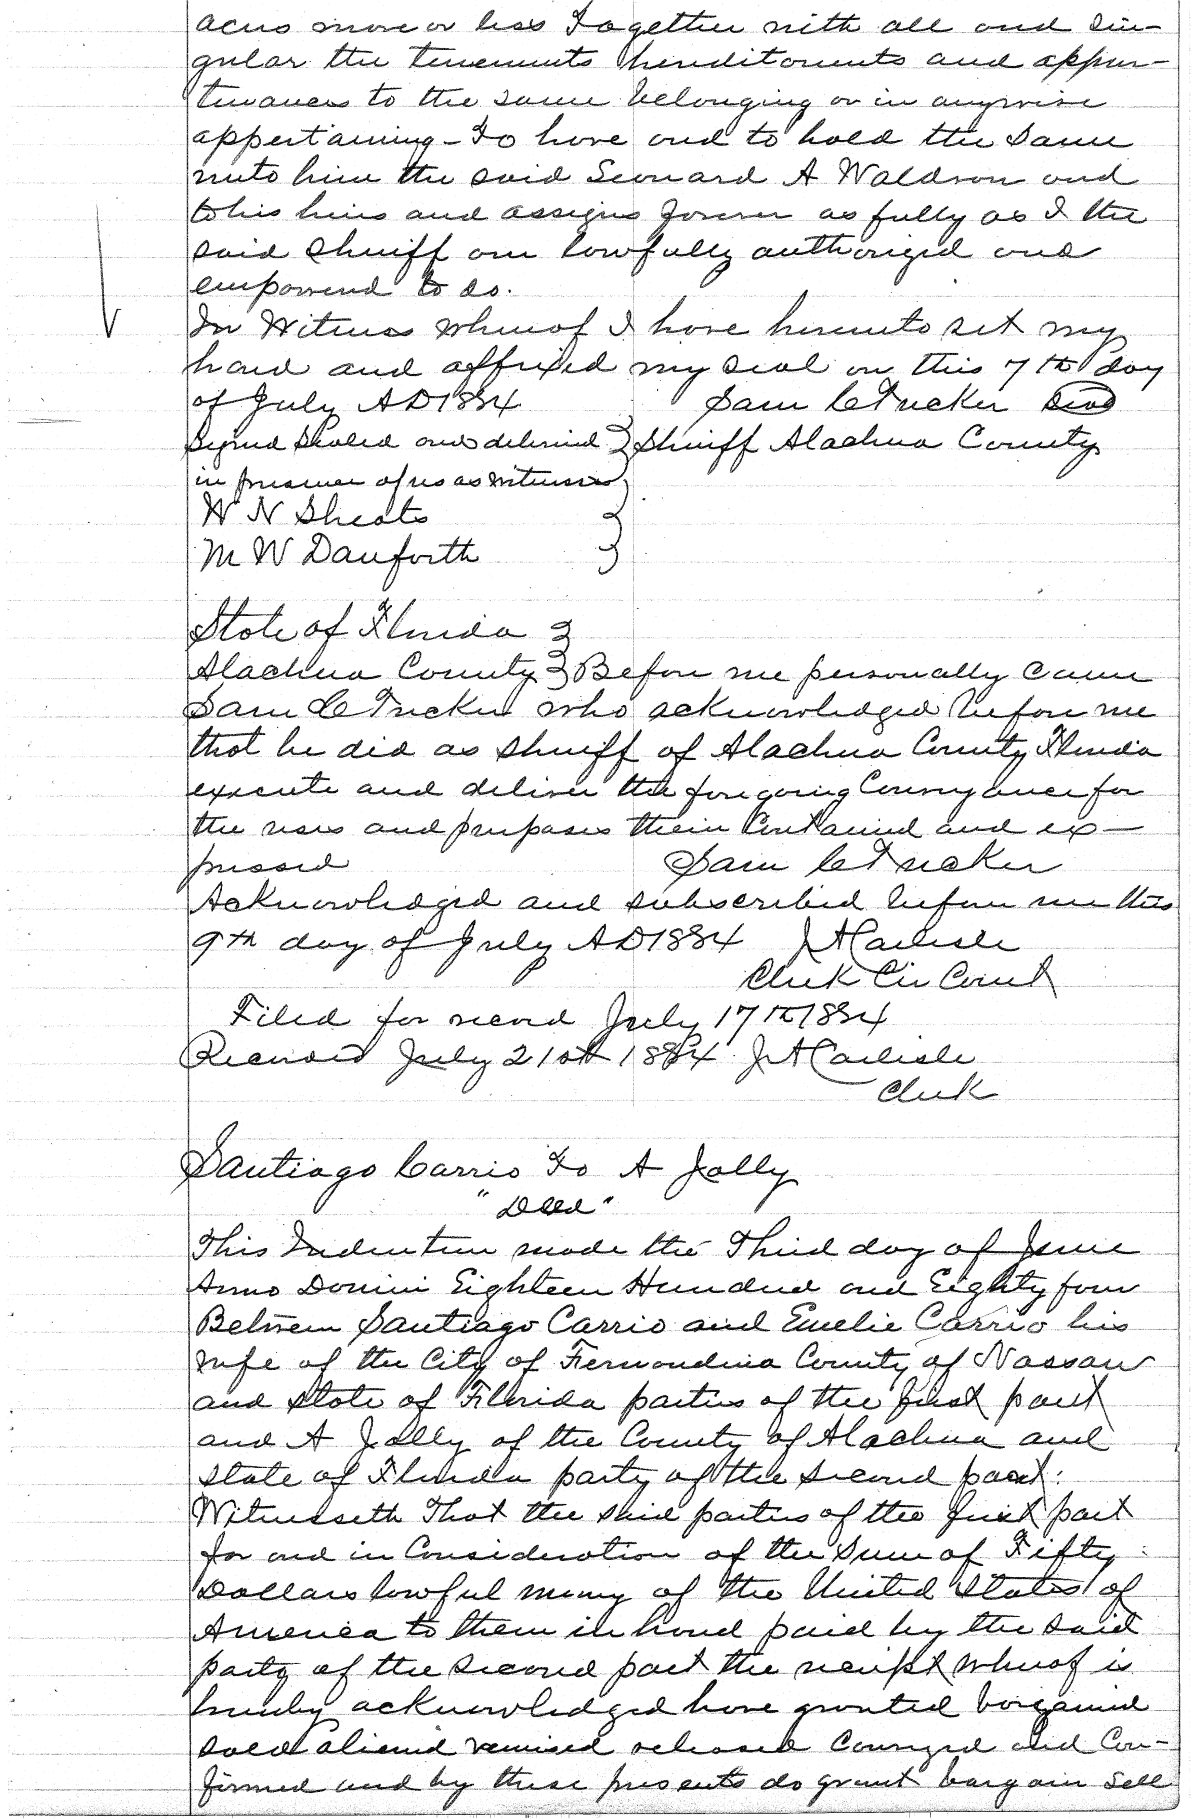 acres more or less Together with all and sin-
gular the tenements hereditaments and appur-
tenances to the same belonging or in anywise
appertaining - To have and to hold the same
unto him the said Leonard A Waldron and
to his heirs and assigns forever as fully as I the
said Sheriff am lawfully authorized and
empowered to do.
In Witness Whereof I have hereunto set my
hand and affixed my seal on this 7th day
of July AD 1884 Sam C Tucker Seal
Signed Sealed and delivered } Sheriff Alachua County
in presence of us as witnesses }
W N Sheats }
M W Danforth }
State of Florida }
Alachua County } Before me personally came
Sam C Tucker who acknowledged before me
that he did as Sheriff of Alachua County Florida
execute and deliver the foregoing Conveyance for
the uses and purposes therein Contained and ex-
pressed Sam C Tucker
Acknowledged and subscribed before me this
9th day of July AD 1884 J A Carlisle
Clerk Cir Court
Filed for record July 17th 1884
Recorded July 21st 1884 J A Carlisle
Clerk
Santiago Carrio To A Jolly
"Deed"
This Indenture made the Third day of June
Anno Domini Eighteen Hundred and Eighty four
Between Santiago Carrio and Emelie Carrio his
wife of the City of Fernandina County of Nassau
and State of Florida parties of the first part
and A Jolly of the County of Alachua and
State of Florida party of the second part:
Witnesseth That the said parties of the first part
for and in Consideration of the Sum of Fifty
Dollars lawful money of the United States of
America to them in hand paid by the said
party of the second part the receipt whereof is
hereby acknowledged have granted bargained
sold aliened remised released Conveyed and Con-
firmed and by these presents do grant bargain sell